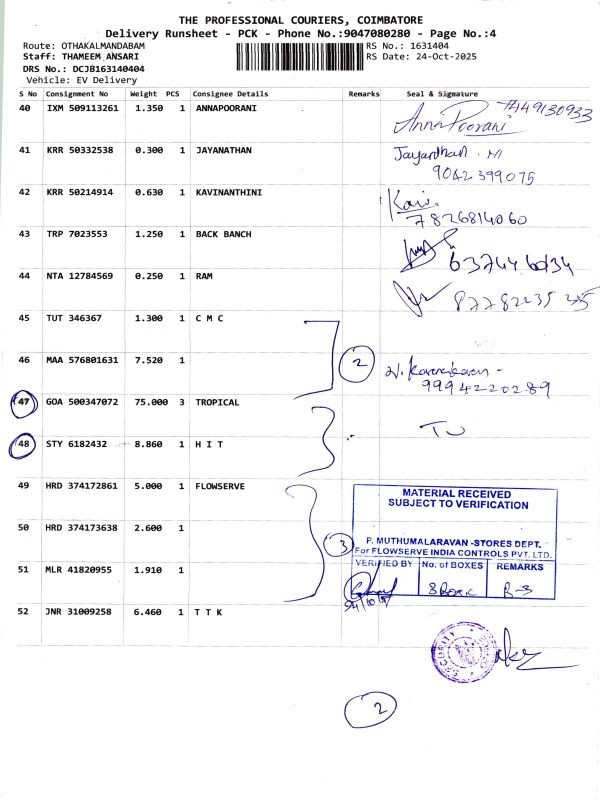 THE PROFESSIONAL COURIERS, COIMBATORE
Delivery Runsheet - PCK - Phone No.:9047080280 - Page No.:4
Route: OTHAKALMANDABAM
RS No.: 1631404
Staff: THAMEEM ANSARI
RS Date: 24-Oct-2025
DRS No.: DCJB163140404
Vehicle: EV Delivery
S No Consignment No Weight PCS Consignee Details Remarks Seal & Signature
40 IXM 509113261 1.350 1 ANNAPOORANI
7449130933
AnnaPoorani
41 KRR 50332538 0.300 1 JAYANATHAN
Jayanthan
9042399075
42 KRR 50214914 0.630 1 KAVINANTHINI
Kavi
7826814060
43 TRP 7023553 1.250 1 BACK BANCH
44 NTA 12784569 0.250 1 RAM
45 TUT 346367 1.300 1 C M C
46 MAA 576801631 7.520 1
2
9994220289
47 GOA 500347072 75.000 3 TROPICAL
48 STY 6182432 8.860 1 H I T
49 HRD 374172861 5.000 1 FLOWSERVE
MATERIAL RECEIVED
SUBJECT TO VERIFICATION
50 HRD 374173638 2.600 1
3
P. MUTHUMALARAVAN -STORES DEPT.
For FLOWSERVE INDIA CONTROLS PVT. LTD.
51 MLR 41820955 1.910 1
VERIFIED BY No. of BOXES REMARKS
52 JNR 31009258 6.460 1 T T K
SECURITY
2